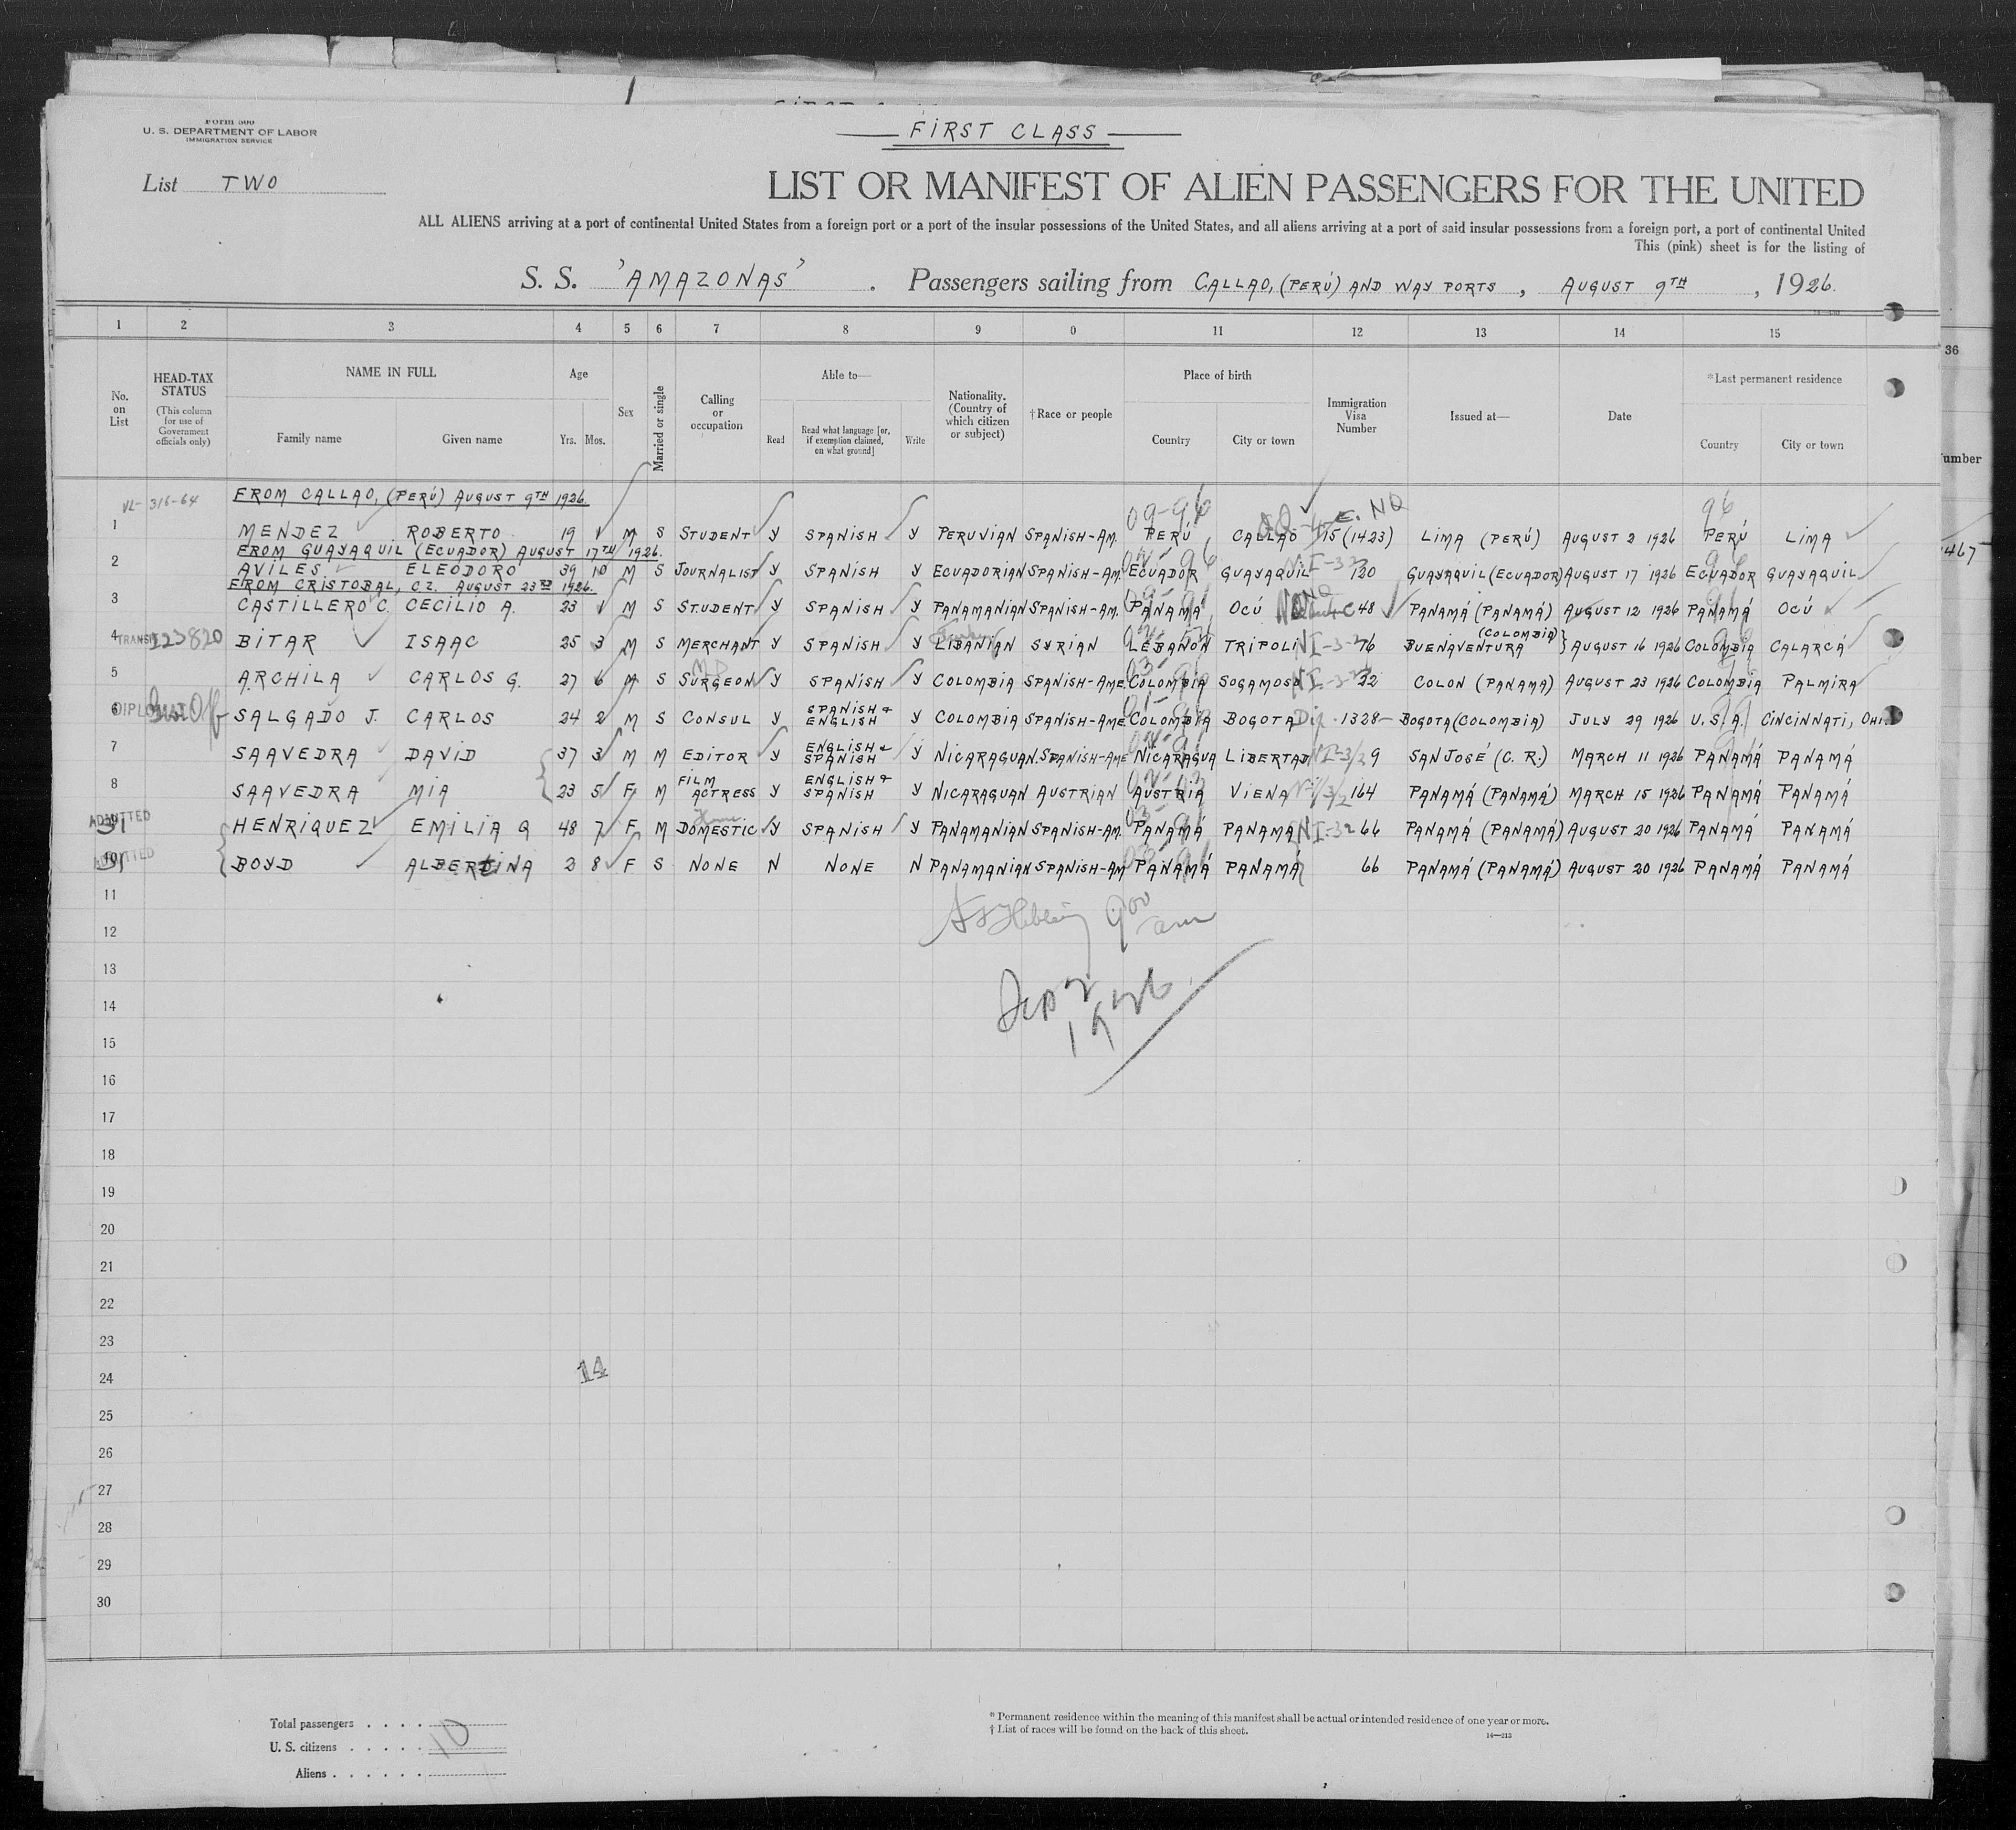 FIRST CLASS
Form 500
U. S. DEPARTMENT OF LABOR
IMMIGRATION SERVICE
List TWO
LIST OR MANIFEST OF ALIEN PASSENGERS FOR THE UNITED
ALL ALIENS arriving at a port of continental United States from a foreign port or a port of the insular possessions of the United States, and all aliens arriving at a port of said insular possessions from a foreign port, a port of continental United
This (pink) sheet is for the listing of
S. S. 'AMAZONAS' . Passengers sailing from CALLAO, (PERÚ) AND WAY PORTS, AUGUST 9TH, 1926.
1 2 3 4 5 6 7 8 9 0 11 12 13 14 15
36
No. on List
HEAD-TAX STATUS
(This column for use of Government officials only)
NAME IN FULL
Family name Given name
Age
Yrs. Mos.
Sex
Married or single
Calling or occupation
Able to—
Read
Read what language [or, if exemption claimed, on what ground]
Write
Nationality. (Country of which citizen or subject)
†Race or people
Place of birth
Country City or town
Immigration Visa Number
Issued at—
Date
*Last permanent residence
Country City or town
umber
316-64 FROM CALLAO, (PERÚ) AUGUST 9TH 1926.
09-96 96
1 MENDEZ ROBERTO 19 M S STUDENT Y SPANISH Y PERUVIAN SPANISH-AM. PERÚ CALLAO 15 (1423) LIMA (PERÚ) AUGUST 2 1926 PERÚ LIMA
FROM GUAYAQUIL (ECUADOR) AUGUST 17TH 1926.
467
2 AVILES ELEODORO 39 10 M S JOURNALIST Y SPANISH Y ECUADORIAN SPANISH-AM. ECUADOR GUAYAQUIL 120 GUAYAQUIL (ECUADOR) AUGUST 17 1926 ECUADOR GUAYAQUIL
FROM CRISTOBAL, C.Z. AUGUST 23RD 1926.
3 CASTILLERO C. CECILIO A. 23 M S STUDENT Y SPANISH Y PANAMANIAN SPANISH-AM. PANAMÁ OCÚ 48 PANAMÁ (PANAMÁ) AUGUST 12 1926 PANAMÁ OCÚ
4 TRANSIT 123820 BITAR ISAAC 25 3 M S MERCHANT Y SPANISH Y LIBANIAN SYRIAN LEBANON TRIPOLI 76 BUENAVENTURA (COLOMBIA) AUGUST 16 1926 COLOMBIA CALARCÁ
5 ARCHILA CARLOS G. 27 6 M S SURGEON Y SPANISH Y COLOMBIA SPANISH-AME. COLOMBIA SOGAMOSO 22 COLON (PANAMA) AUGUST 23 1926 COLOMBIA PALMIRA
6 DIPLOMAT SALGADO J. CARLOS 24 2 M S CONSUL Y SPANISH & ENGLISH Y COLOMBIA SPANISH-AME. COLOMBIA BOGOTA Dip. 1328 BOGOTA (COLOMBIA) JULY 29 1926 U.S.A. CINCINNATI, OHI.
7 SAAVEDRA DAVID 37 3 M M EDITOR Y ENGLISH & SPANISH Y NICARAGUAN SPANISH-AME NICARAGUA LIBERTAD 9 SAN JOSÉ (C. R.) MARCH 11 1926 PANAMÁ PANAMÁ
8 SAAVEDRA MIA 23 5 F M FILM ACTRESS Y ENGLISH & SPANISH Y NICARAGUAN AUSTRIAN AUSTRIA VIENA 164 PANAMÁ (PANAMÁ) MARCH 15 1926 PANAMÁ PANAMÁ
ADMITTED HENRIQUEZ EMILIA G 48 7 F M DOMESTIC Y SPANISH Y PANAMANIAN SPANISH-AM. PANAMÁ PANAMÁ 66 PANAMÁ (PANAMÁ) AUGUST 20 1926 PANAMÁ PANAMÁ
ADMITTED BOYD ALBERTINA 2 8 F S NONE N NONE N PANAMANIAN SPANISH-AM PANAMÁ PANAMÁ 66 PANAMÁ (PANAMÁ) AUGUST 20 1926 PANAMÁ PANAMÁ
11
900 am
12
13
Sep 2
1926
14
15
16
17
18
19
20
21
22
23
24
14
25
26
27
28
29
30
Total passengers . . . . 10
U. S. citizens . . . . .
Aliens . . . . . .
* Permanent residence within the meaning of this manifest shall be actual or intended residence of one year or more.
† List of races will be found on the back of this sheet.
14—213